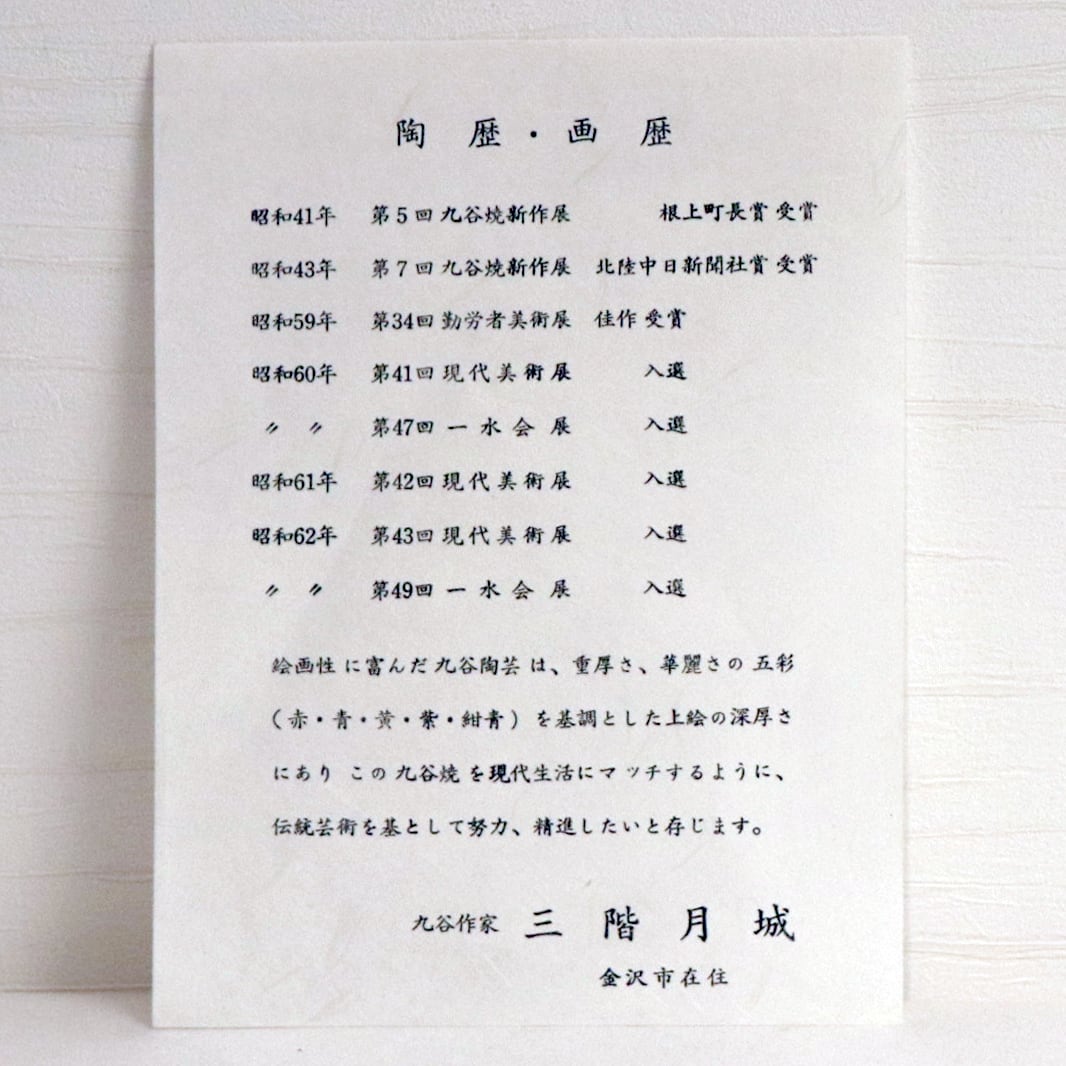 陶歴・画歴
昭和41年 第5回 九谷焼新作展 根上町長賞 受賞
昭和43年 第7回 九谷焼新作展 北陸中日新聞社賞 受賞
昭和59年 第34回 勤労者美術展 佳作 受賞
昭和60年 第41回 現代美術展 入選
〃 〃 第47回 一水会展 入選
昭和61年 第42回 現代美術展 入選
昭和62年 第43回 現代美術展 入選
〃 〃 第49回 一水会展 入選
絵画性に富んだ九谷陶芸は、重厚さ、華麗さの五彩
(赤・青・黄・紫・紺青)を基調とした上絵の深厚さ
にありこの九谷焼を現代生活にマッチするように、
伝統芸術を基として努力、精進したいと存じます。
九谷作家 三階月城
金沢市在住